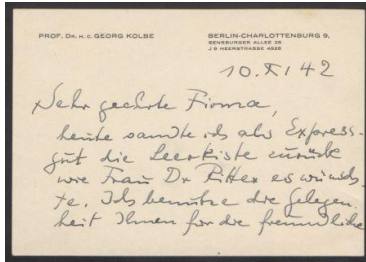 PROF. DR. H. C. GEORG KOLBE
BERLIN-CHARLOTTENBURG 9,
SENSBURGER ALLEE 26
J 9 HEERSTRASSE 4928
10.XI 42
Sehr geehrte Firma,
heute sandte ich als Express-
gut die Leerkiste zurück
wie Frau Dr Ritter es wünsch-
te. Ich benutze die Gelegen-
heit Ihnen für die freundliche